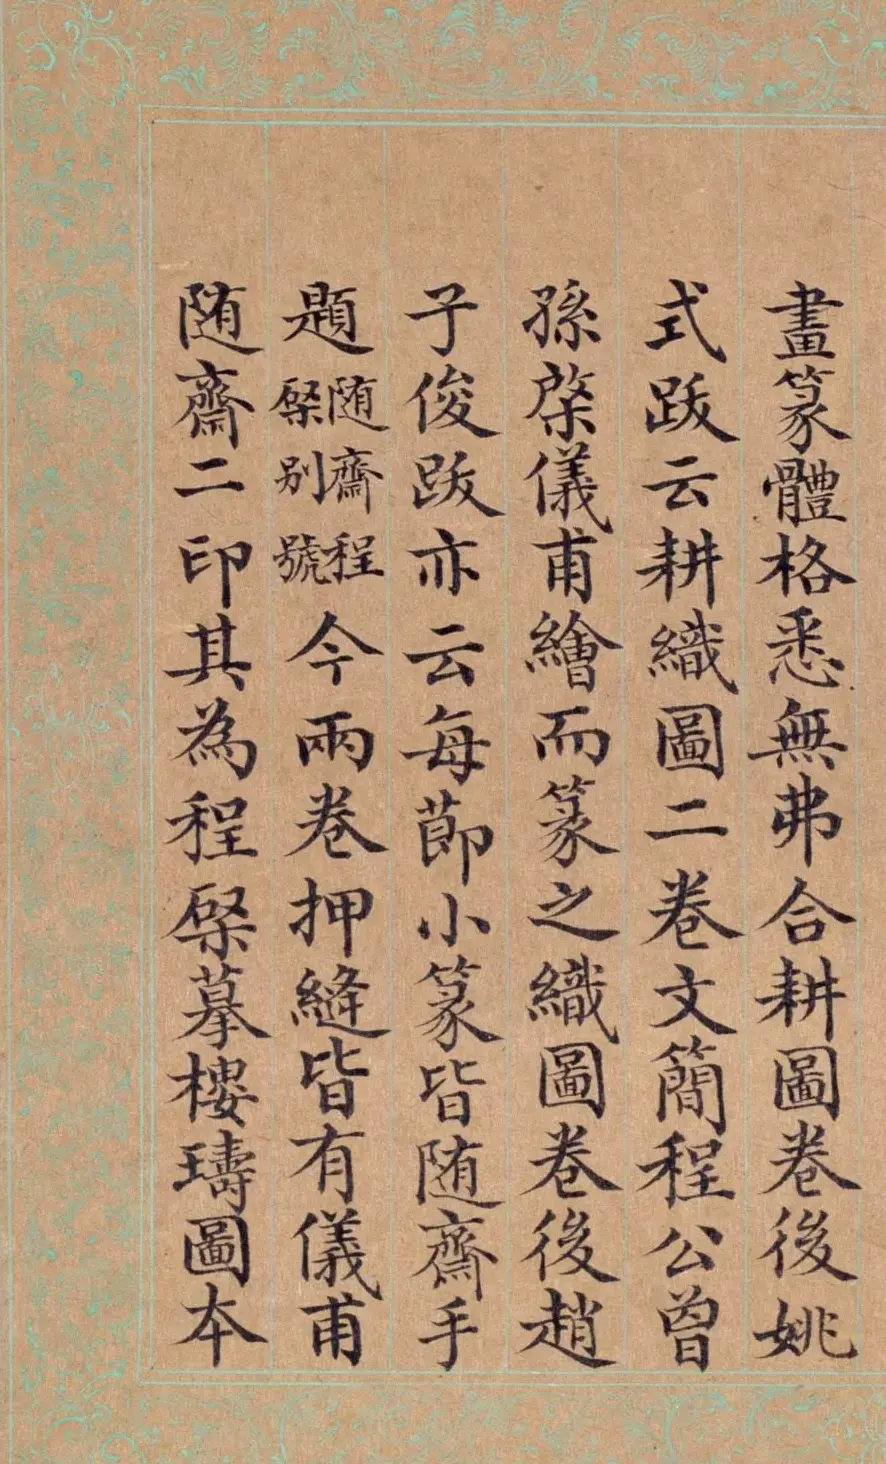 畫篆體格悉無弗合耕圖卷後姚
式跋云耕織圖二卷文簡程公曾
孫棨儀甫繪而篆之織圖卷後趙
子俊跋亦云每莭小篆皆随齋手
題随齋程棨别號今兩卷押縫皆有儀甫
随齋二印其為程棨摹樓璹圖本